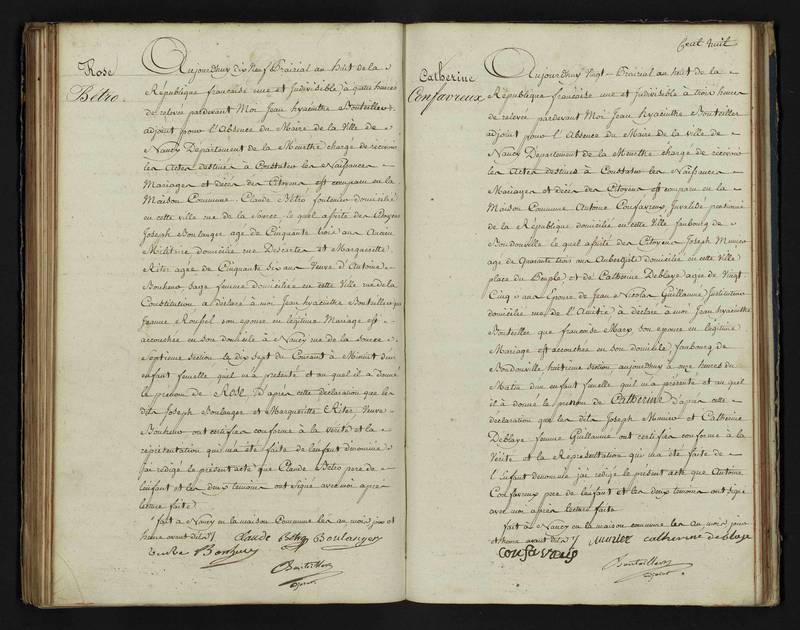 Rose
Bétro.
Aujourdhuy dix Neuf Prairial an huit de la
République francaise une et Indivisible à quatre heures
de relevée pardevant Moi Jean hyacinthe Bouteiller
adjoint pour l'Absence du Maire de la Ville de
Nancy Departement de la Meurthe chargé de recevoir
les Actes destinés à Constater les Naissances
Mariages et décès des Citoyens est comparu en la
Maison Commune, Claude Bétro domicilié
en cette ville rue de la source, lequel assisté des Citoyens
Joseph Boulanger age de Cinquante trois ans Ancien
Militaire domicilié rue Descartes et Margueritte
Riter agée de Cinquante six ans Veuve d'Antoine
Bonheur, Sage femme domiciliée en cette Ville rue de la
Constitution a déclaré à moi Jean hyacinthe Bouteiller que
Jeanne Roussel son epouse en légitime Mariage est
accouchée en son domicile à Nancy rue de la source
Septieme section le dix sept du Courant à Minuit d'un
enfant femelle qu'il m'a presenté et au quel il a donné
le prenom de Rose, D'après cette déclaration que les
dits Joseph Boulanger et Margueritte Riter, Veuve
Bonheur ont certifiée conforme à la verité et la
representation qui m'a été faite de l'enfant dénommé
j'ai redigé le present acte que Claude Bétro pere de
l'enfant et les deux temoins ont signé avec moi après
lecture faite
fait à Nancy en la maison Commune les an, mois, jour et
heure avant dits Claude Betro Boulanger
Bonheur
Bouteiller
adjoint
Cent huit
Catherine
Confavreux
Aujourdhuy Vingt Prairial an huit de la
République francaise une et Indivisible à trois heures
de relevée pardevant Moi Jean hyacinthe Bouteiller
adjoint pour l'Absence du Maire de la Ville de
Nancy Departement de la Meurthe chargé de recevoir
les Actes destinés à Constater les Naissances
Mariages et décès des Citoyens est comparu en la
Maison Commune Antoine Confavreux, Invalide pensionné
de la République domicilié en cette Ville faubourg de
Boudonville le quel assisté des Citoyens Joseph Munier
age de Quarante trois ans Aubergiste domicilié en cette Ville
place du Peuple et de Catherine Deblaye agée de Vingt
Cinq ans Epouse de Jean Nicolas Guillaume, Instituteur
domiciliée rue de l'Amitié à déclaré à moi Jean hyacinthe
Bouteiller que françoise Mary son epouse en légitime
Mariage est accouchée en son domicile, faubourg de
Boudonville huitieme section, aujourdhuy à onze heures du
Matin d'un enfant femelle qu'il m'a présenté et au quel
il à donné le prenom de Catherine D'apres cette
déclaration que les dits Joseph Munier et Catherine
Deblaye femme Guillaume ont certifiée conforme à la
Verité et la Représentation qui m'a été faite de
l'Enfant denommé j'ai redigé le présent acte que Antoine
Confavreux pere de l'enfant et les deux temoins ont signé
avec moi après lecture faite
fait à Nancy en la maison commune les an, mois, jour
et heure avant dits munier catherine deblaye
Confavreux
Bouteiller
adjoint